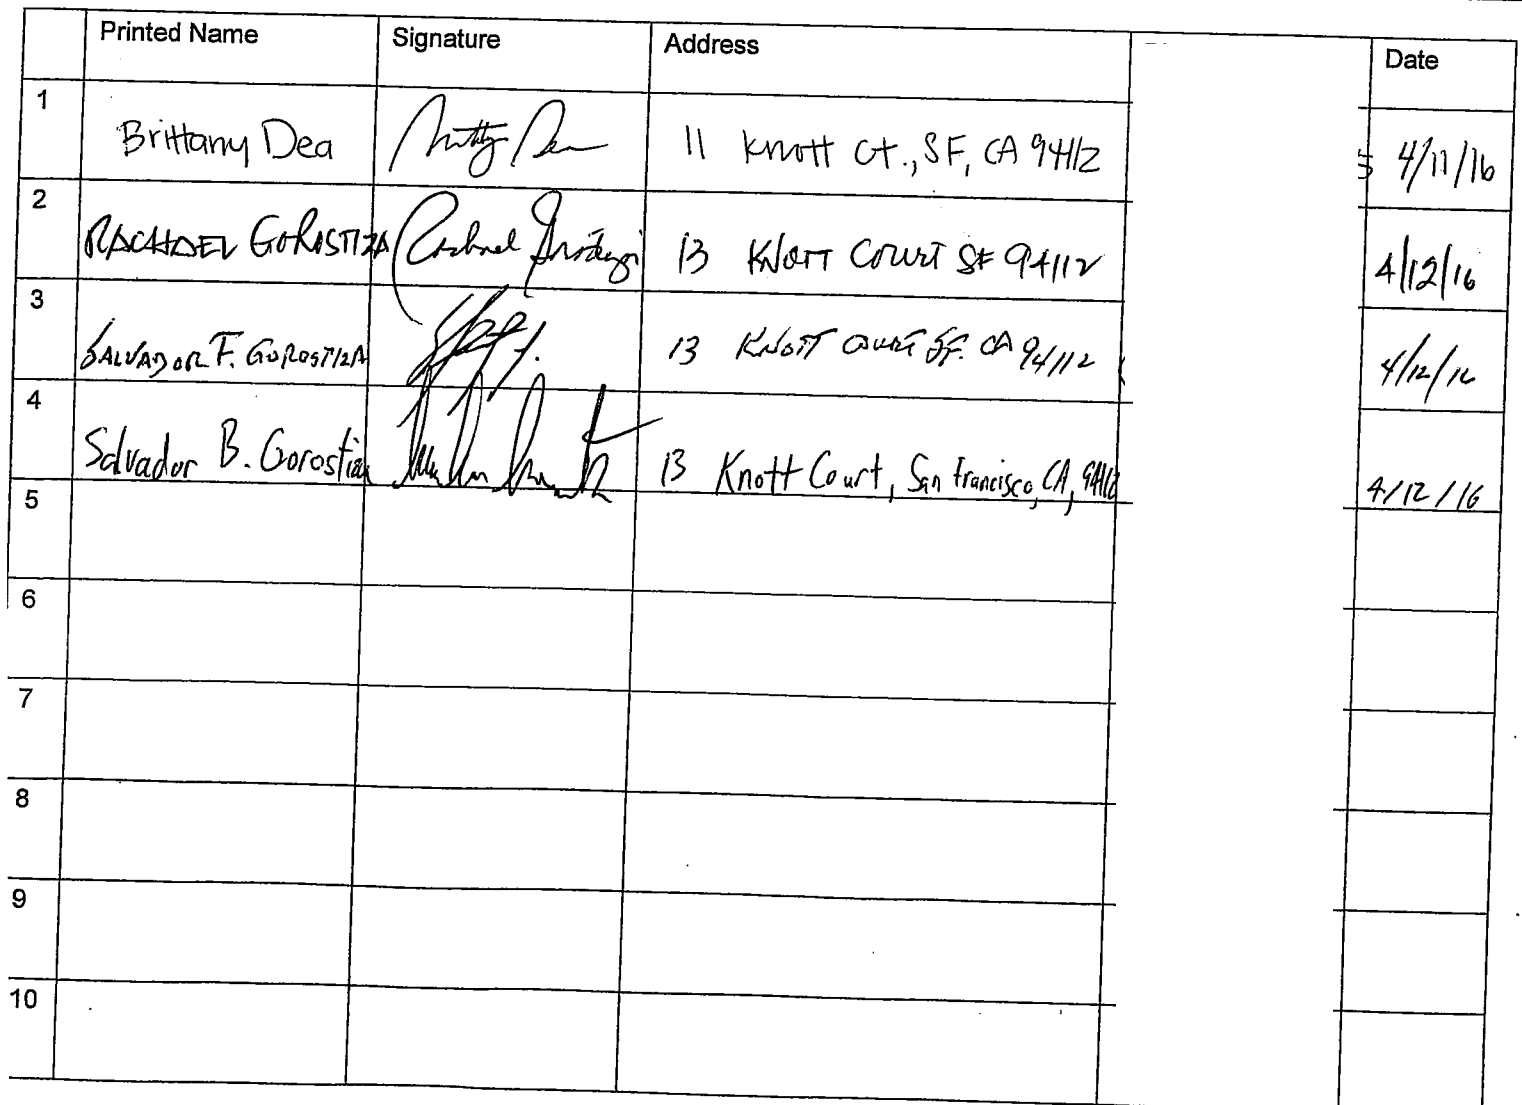 Printed Name Signature Address Date
1 Brittany Dea 11 Knott Ct., SF, CA 94112 4/11/16
2 RACHAEL GOROSTIZA Rachael Gorostiza 13 KNOTT COURT SF 94112 4/12/16
3 SALVADOR F. GOROSTIZA 13 KNOTT COURT SF. CA 94112 4/12/16
4 Salvador B. Gorostiza 13 Knott Court, San Francisco, CA, 94112 4/12/16
5
6
7
8
9
10